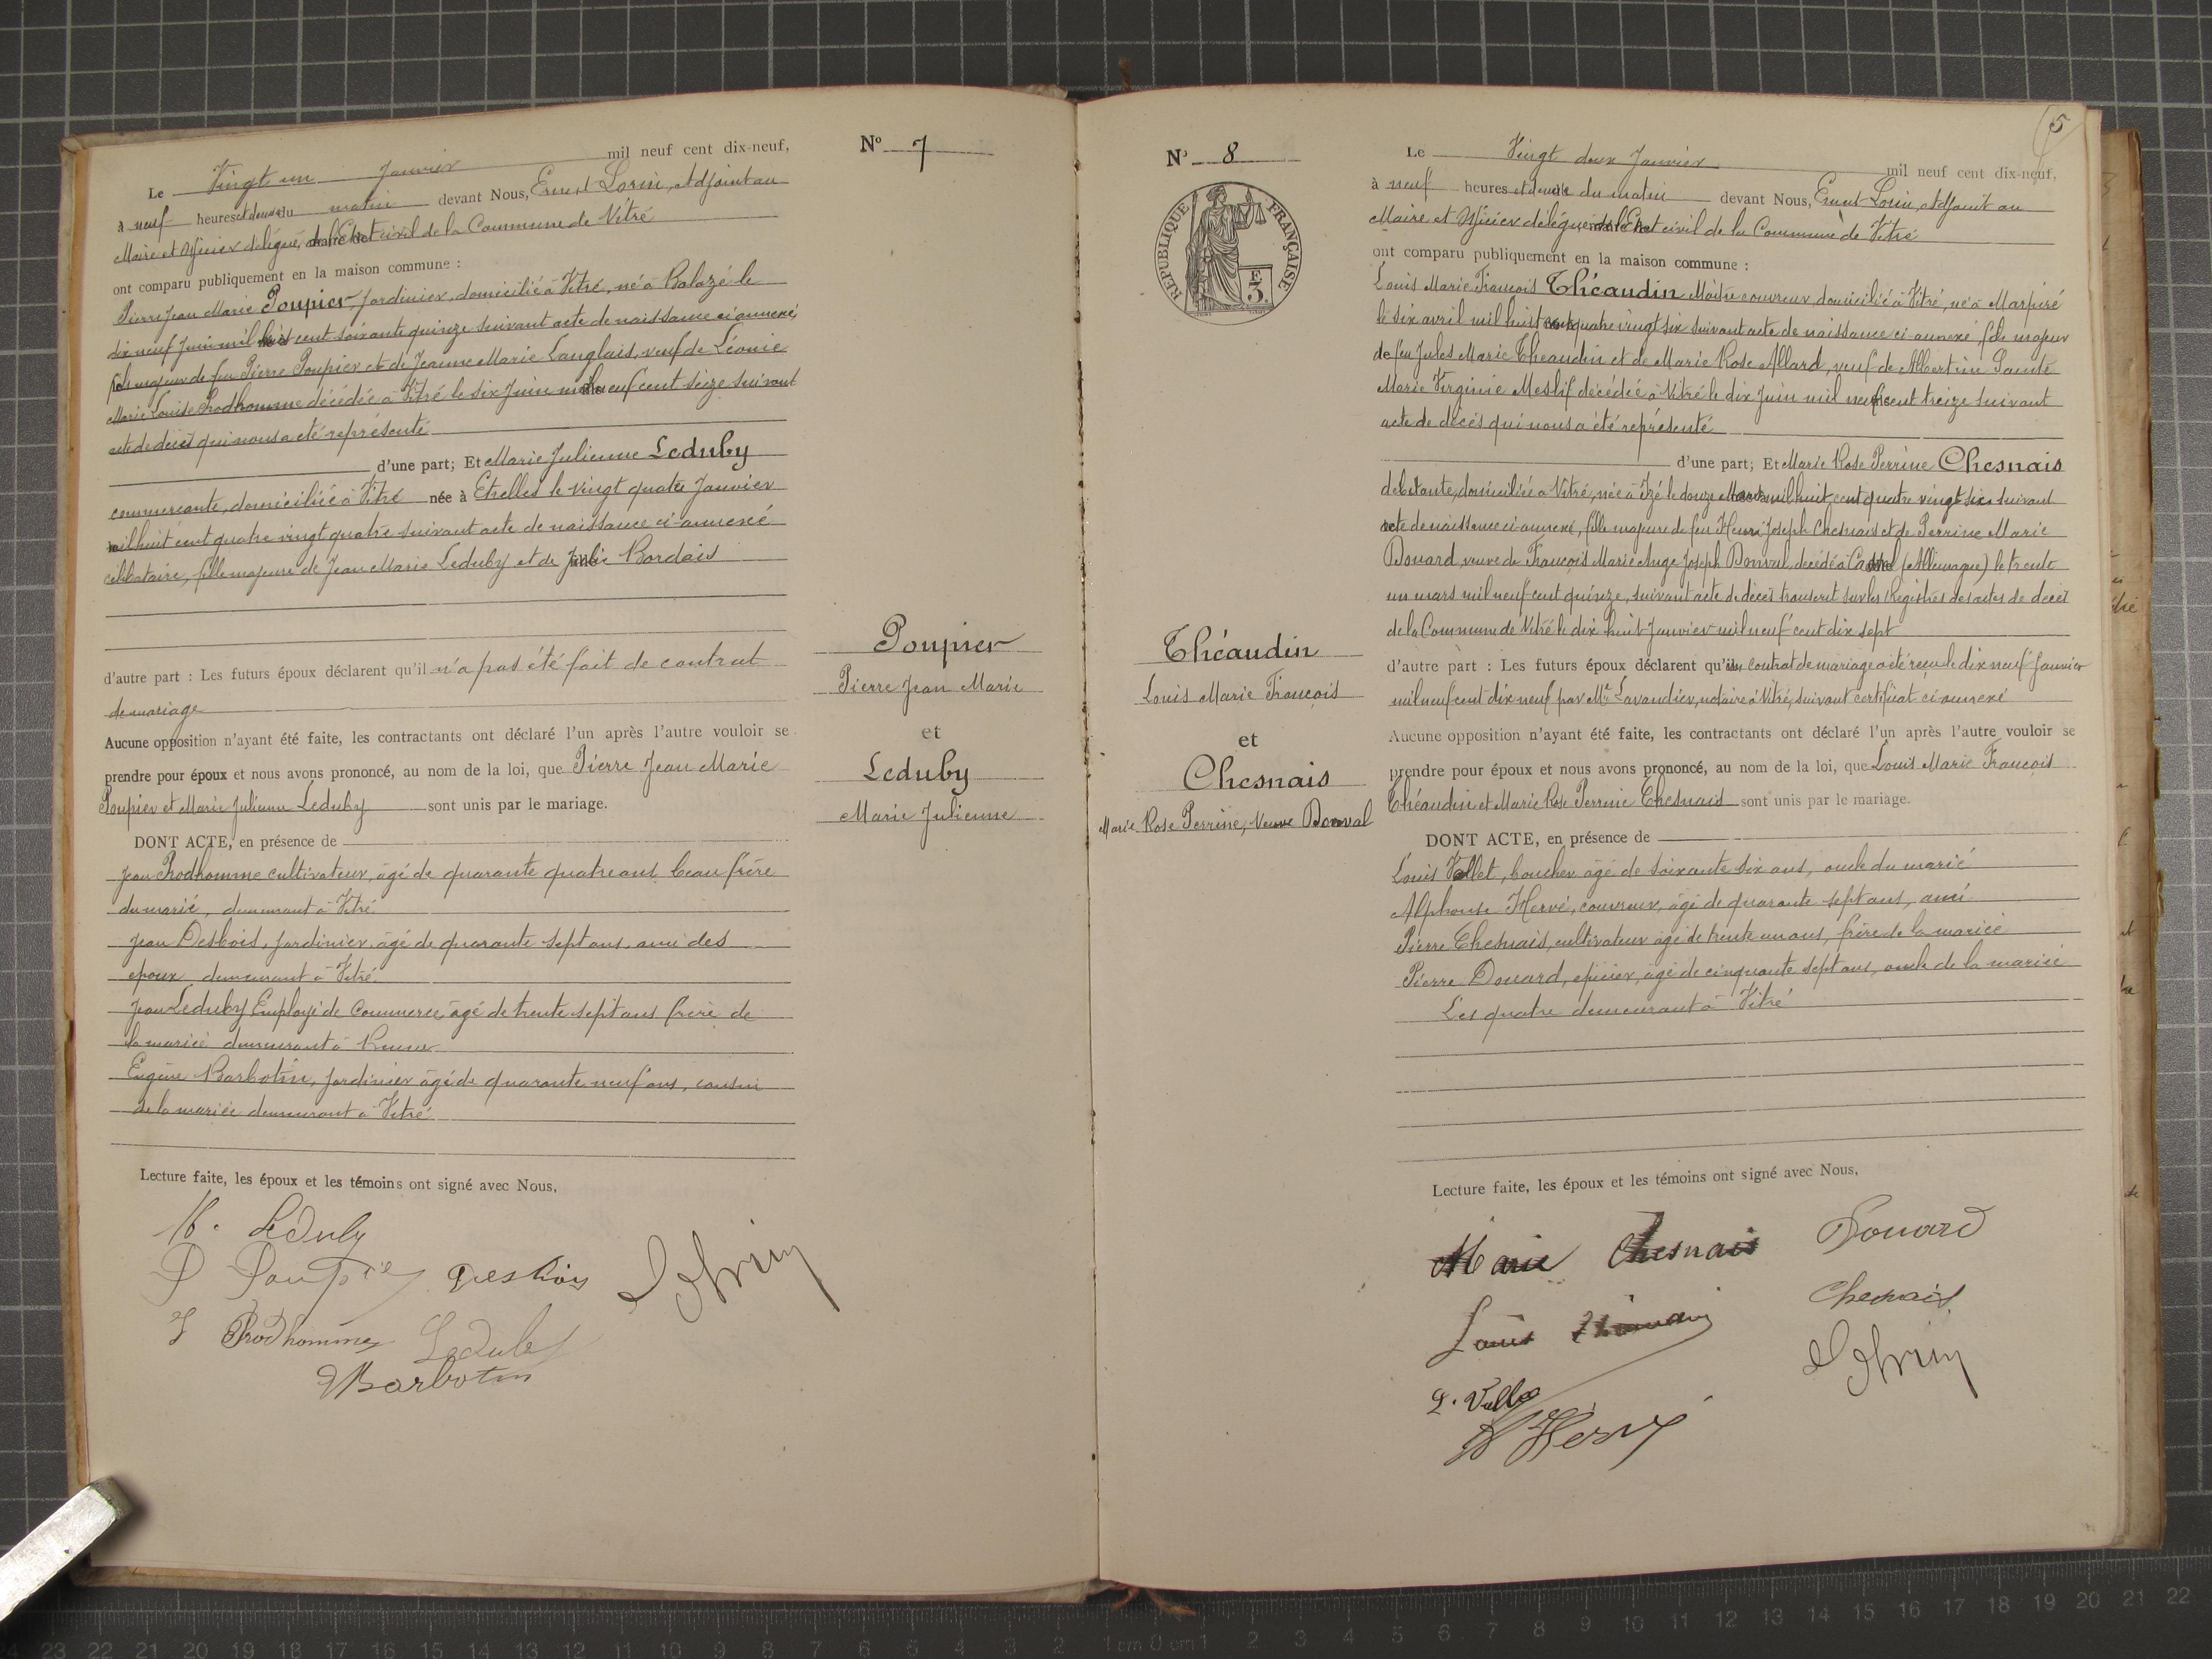 Nº 7
Le Vingt un Janvier mil neuf cent dix-neuf,
à neuf heures et demie du matin devant Nous, Ernest Lorin, Adjoint au
Maire et Officier délégué, de l'Etat civil de la Commune de Vitré
ont comparu publiquement en la maison commune :
Pierre Jean Marie Poupier, Jardinier, domicilié à Vitré, né à Balazé le
dix neuf Juin mil huit cent soixante quinze suivant acte de naissance ci annexé,
fils majeur de feu Pierre Poupier et de Jeanne Marie Langlais, veuf de Léonie
Marie Louise Prodhomme décédée à Vitré le six Juin mil neuf cent seize suivant
acte de décès qui nous a été représenté
d'une part; Et Marie Julienne Leduby
commerçante, domiciliée à Vitré née à Etrelles le vingt quatre Janvier
mil huit cent quatre vingt quatre suivant acte de naissance ci-annexé
célibataire, fille majeure de Jean Marie Leduby et de Julie Bordais
d'autre part : Les futurs époux déclarent qu'il n'a pas été fait de contrat
de mariage
Aucune opposition n'ayant été faite, les contractants ont déclaré l'un après l'autre vouloir se
prendre pour époux et nous avons prononcé, au nom de la loi, que Pierre Jean Marie
Poupier et Marie Julienne Leduby sont unis par le mariage.
DONT ACTE, en présence de
Jean Prodhomme cultivateur, âgé de quarante quatre ans beau frère
du marié, demeurant à Vitré
Jean Desbois, Jardinier, âgé de quarante sept ans, ami des
époux demeurant à Vitré
Jean Leduby Employé de Commerce âgé de trente sept ans frère de
la mariée demeurant à Rennes
Eugène Barbotin, Jardinier âgé de quarante neuf ans, cousin
de la mariée demeurant à Vitré
Lecture faite, les époux et les témoins ont signé avec Nous,
M. Leduby
P Poupier Desbois ELorin
J Prodhomme Leduby
EBarbotin
Poupier
Pierre Jean Marie
et
Leduby
Marie Julienne
5
Nº 8
RÉPUBLIQUE FRANÇAISE
E
3.
Théaudin
Louis Marie François
et
Chesnais
Marie Rose Perrine, Veuve Bonval
Le Vingt deux Janvier mil neuf cent dix-neuf,
à neuf heures et demie du matin devant Nous, Ernest Lorin, Adjoint au
Maire et Officier délégué de l'Etat civil de la Commune de Vitré
ont comparu publiquement en la maison commune :
Louis Marie François Théaudin Maître couvreur, domicilié à Vitré, né à Marpiré
le six avril mil huit cent quatre vingt six suivant acte de naissance ci-annexé, fils majeur
de feu Jules Marie Théaudin et de Marie Rose Allard, veuf de Albertine Sainte
Marie Virginie Meslif décédée à Vitré le dix Juin mil neuf cent treize suivant
acte de décès qui nous a été représenté
d'une part; Et Marie Rose Perrine Chesnais
débitante, domiciliée à Vitré, née à Izé le douze Mars mil huit cent quatre vingt six suivant
acte de naissance ci annexé, fille majeure de feu Henri Joseph Chesnais et de Perrine Marie
Douard, veuve de François Marie Ange Joseph Bonval, décédé à Cassel (Allemagne) le trente
un mars mil neuf cent quinze, suivant acte de décès transcrit sur les Registres des actes de décès
de la Commune de Vitré le dix huit Janvier mil neuf cent dix sept
d'autre part : Les futurs époux déclarent qu'un contrat de mariage a été reçu le dix neuf Janvier
mil neuf cent dix neuf par Me Lavandier, notaire à Vitré, suivant certificat ci annexé
Aucune opposition n'ayant été faite, les contractants ont déclaré l'un après l'autre vouloir se
prendre pour époux et nous avons prononcé, au nom de la loi, que Louis Marie François
Théaudin et Marie Rose Perrine Chesnais sont unis par le mariage.
DONT ACTE, en présence de
Louis Vallet, boucher âgé de soixante six ans, oncle du marié
Alphonse Hervé, couvreur, âgé de quarante sept ans, ami
Pierre Chesnais, cultivateur âgé de trente un ans, frère de la mariée
Pierre Douard, épicier, âgé de cinquante sept ans, oncle de la mariée
Les quatre demeurant à Vitré
Lecture faite, les époux et les témoins ont signé avec Nous,
Marie Chesnais Douard
Louis Chesnais
ELorin
L. Vallet
A Hervé